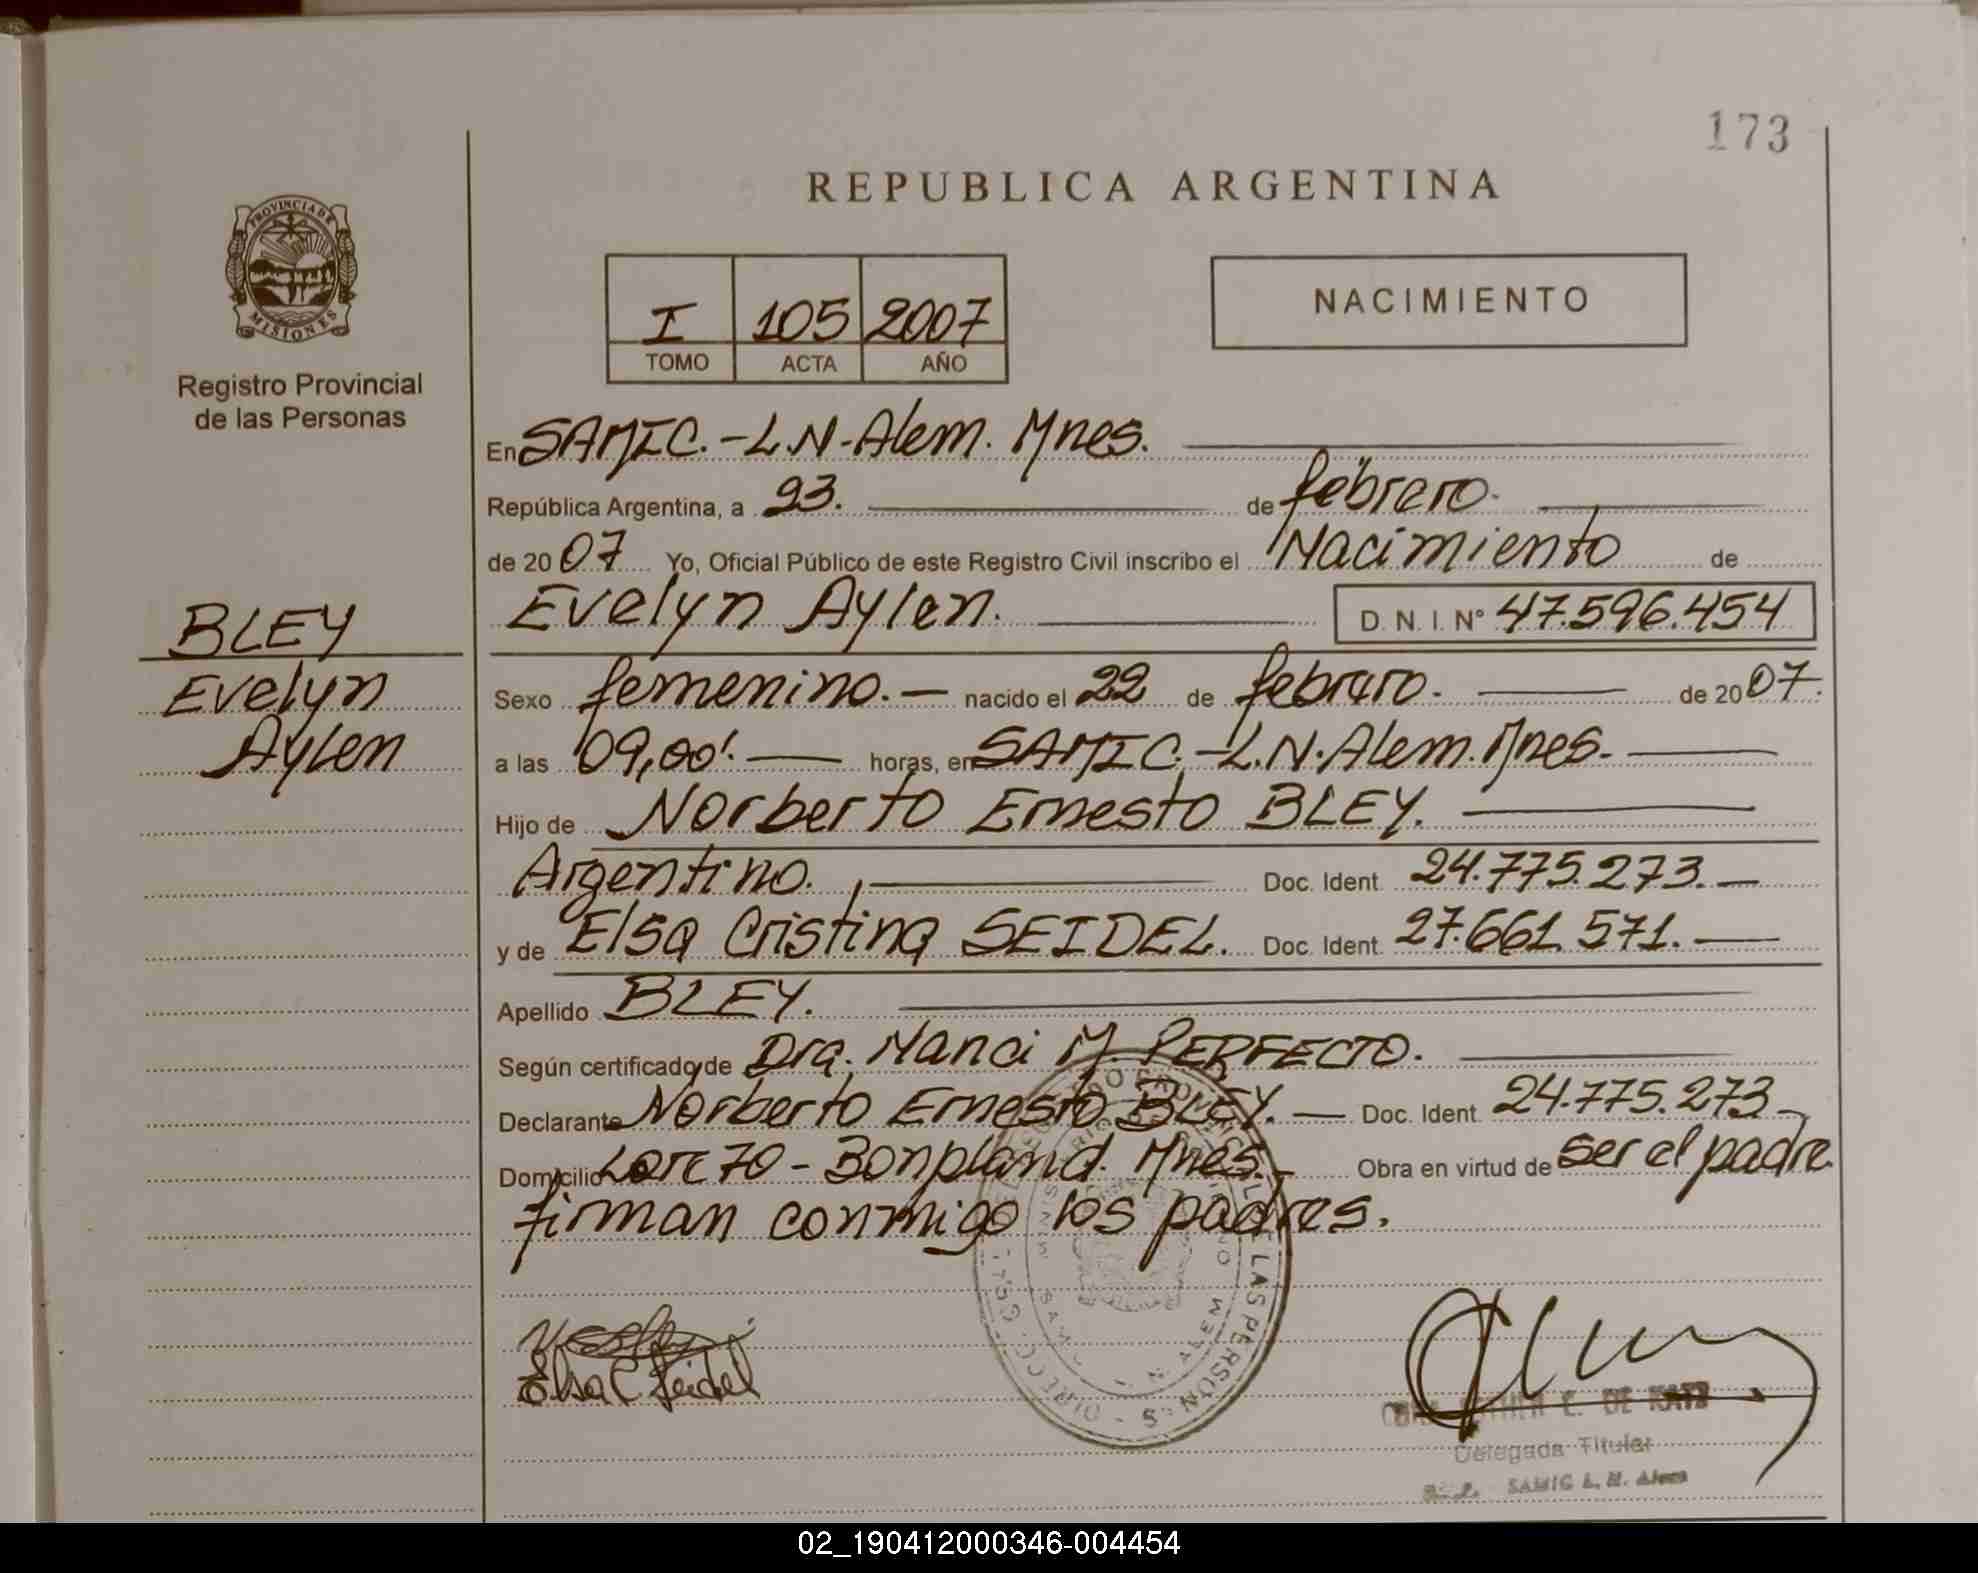 173
REPUBLICA ARGENTINA
PROVINCIA DE MISIONES
Registro Provincial
de las Personas
I 105 2007
TOMO ACTA AÑO
NACIMIENTO
En SAMIC.-L.N-Alem. Mnes.
República Argentina, a 23. de febrero.
de 2007 Yo, Oficial Público de este Registro Civil inscribo el Nacimiento de
Evelyn Aylen. D.N.I.N° 47.596.454
BLEY
Evelyn
Aylen
Sexo femenino.- nacido el 22 de febrero. de 2007.
a las 09,00'. horas, en SAMIC.-L.N.Alem.Mnes.
Hijo de Norberto Ernesto BLEY.
Argentino. Doc. Ident. 24.775.273.-
y de Elsa Cristina SEIDEL. Doc. Ident. 27.661.571.-
Apellido BLEY.
Según certificado de Dra. Nanci M. PERFECTO.
Declarante Norberto Ernesto BLEY.- Doc. Ident. 24.775.273
Domicilio 70-Bonpland. Mnes.- Obra en virtud de ser el padre.
firman conmigo los padres.
Elsa C Seidel
DE
Delegada Titular
SAMIC L. N. Alem
02_190412000346-004454